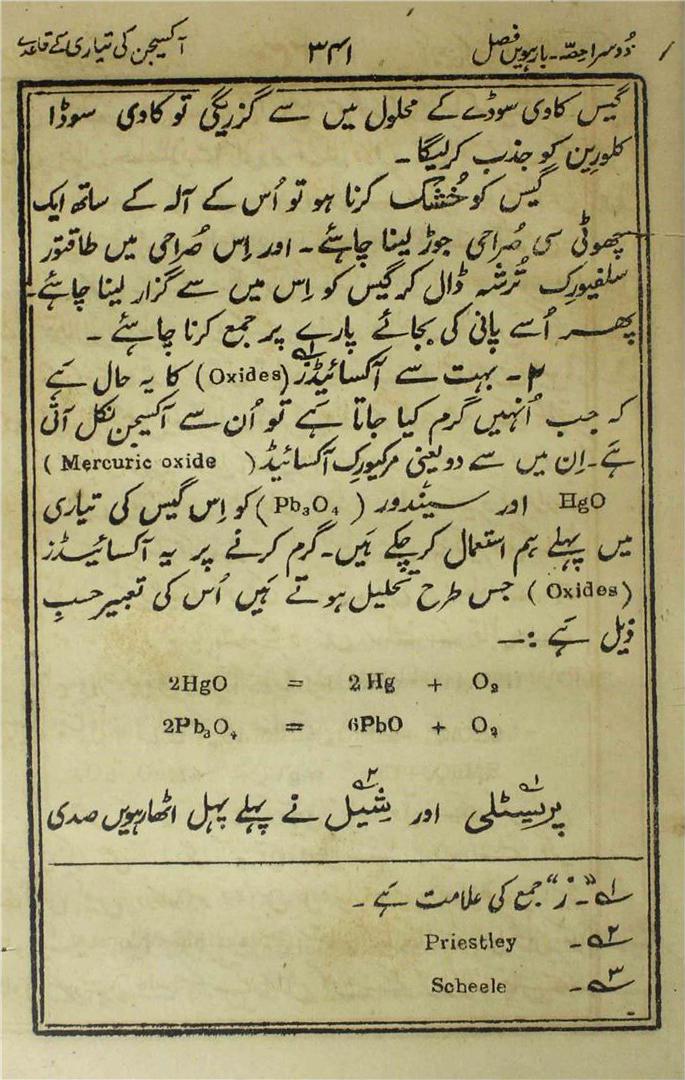 دُوسرا حصّہ۔ بارہویں فصل ۳۴۱ آکسیجن کی تیاری کے قاعدے
گیس کاوی سوڈے کے محلول میں سے گزریگی تو کاوی سوڈا
کلورین کو جذب کرلیگا۔
گیس کو خُشک کرنا ہو تو اُس کے آلہ کے ساتھ ایک
چھوٹی سی صُراحی جوڑ لینا چاہئے۔ اور اِس صُراحی میں طاقتور
سلفیورِک تُرشہ ڈال کر گیس کو اِس میں سے گزار لینا چاہئے۔
پھر اُسے پانی کی بجائے پارے پر جمع کرنا چاہئے۔
۲۔ بہت سے آکسائیڈز (Oxides) کا یہ حال ہَے
کہ جب اُنہیں گرم کیا جاتا ہَے تو اُن سے آکسیجن نکل آتی
ہَے۔ اِن میں سے دو یعنی مرکیورِک آکسائیڈ (Mercuric oxide)
HgO اور سیندور (Pb₃O₄) کو اِس گیس کی تیاری
میں پہلے ہم استعمال کر چکے ہَیں۔ گرم کرنے پر یہ آکسائیڈز
(Oxides) جس طرح تحلیل ہوتے ہَیں اُس کی تعبیر حسبِ
ذیل ہَے :—
2HgO = 2Hg + O₂
2Pb₃O₄ = 6PbO + O₂
پریسٹلی۱ اور شیل۲ نے پہلے پہل اٹھارہویں صدی
۱۔ "ز" جمع کی علامت ہَے۔
۲۔ Priestley
۳۔ Scheele